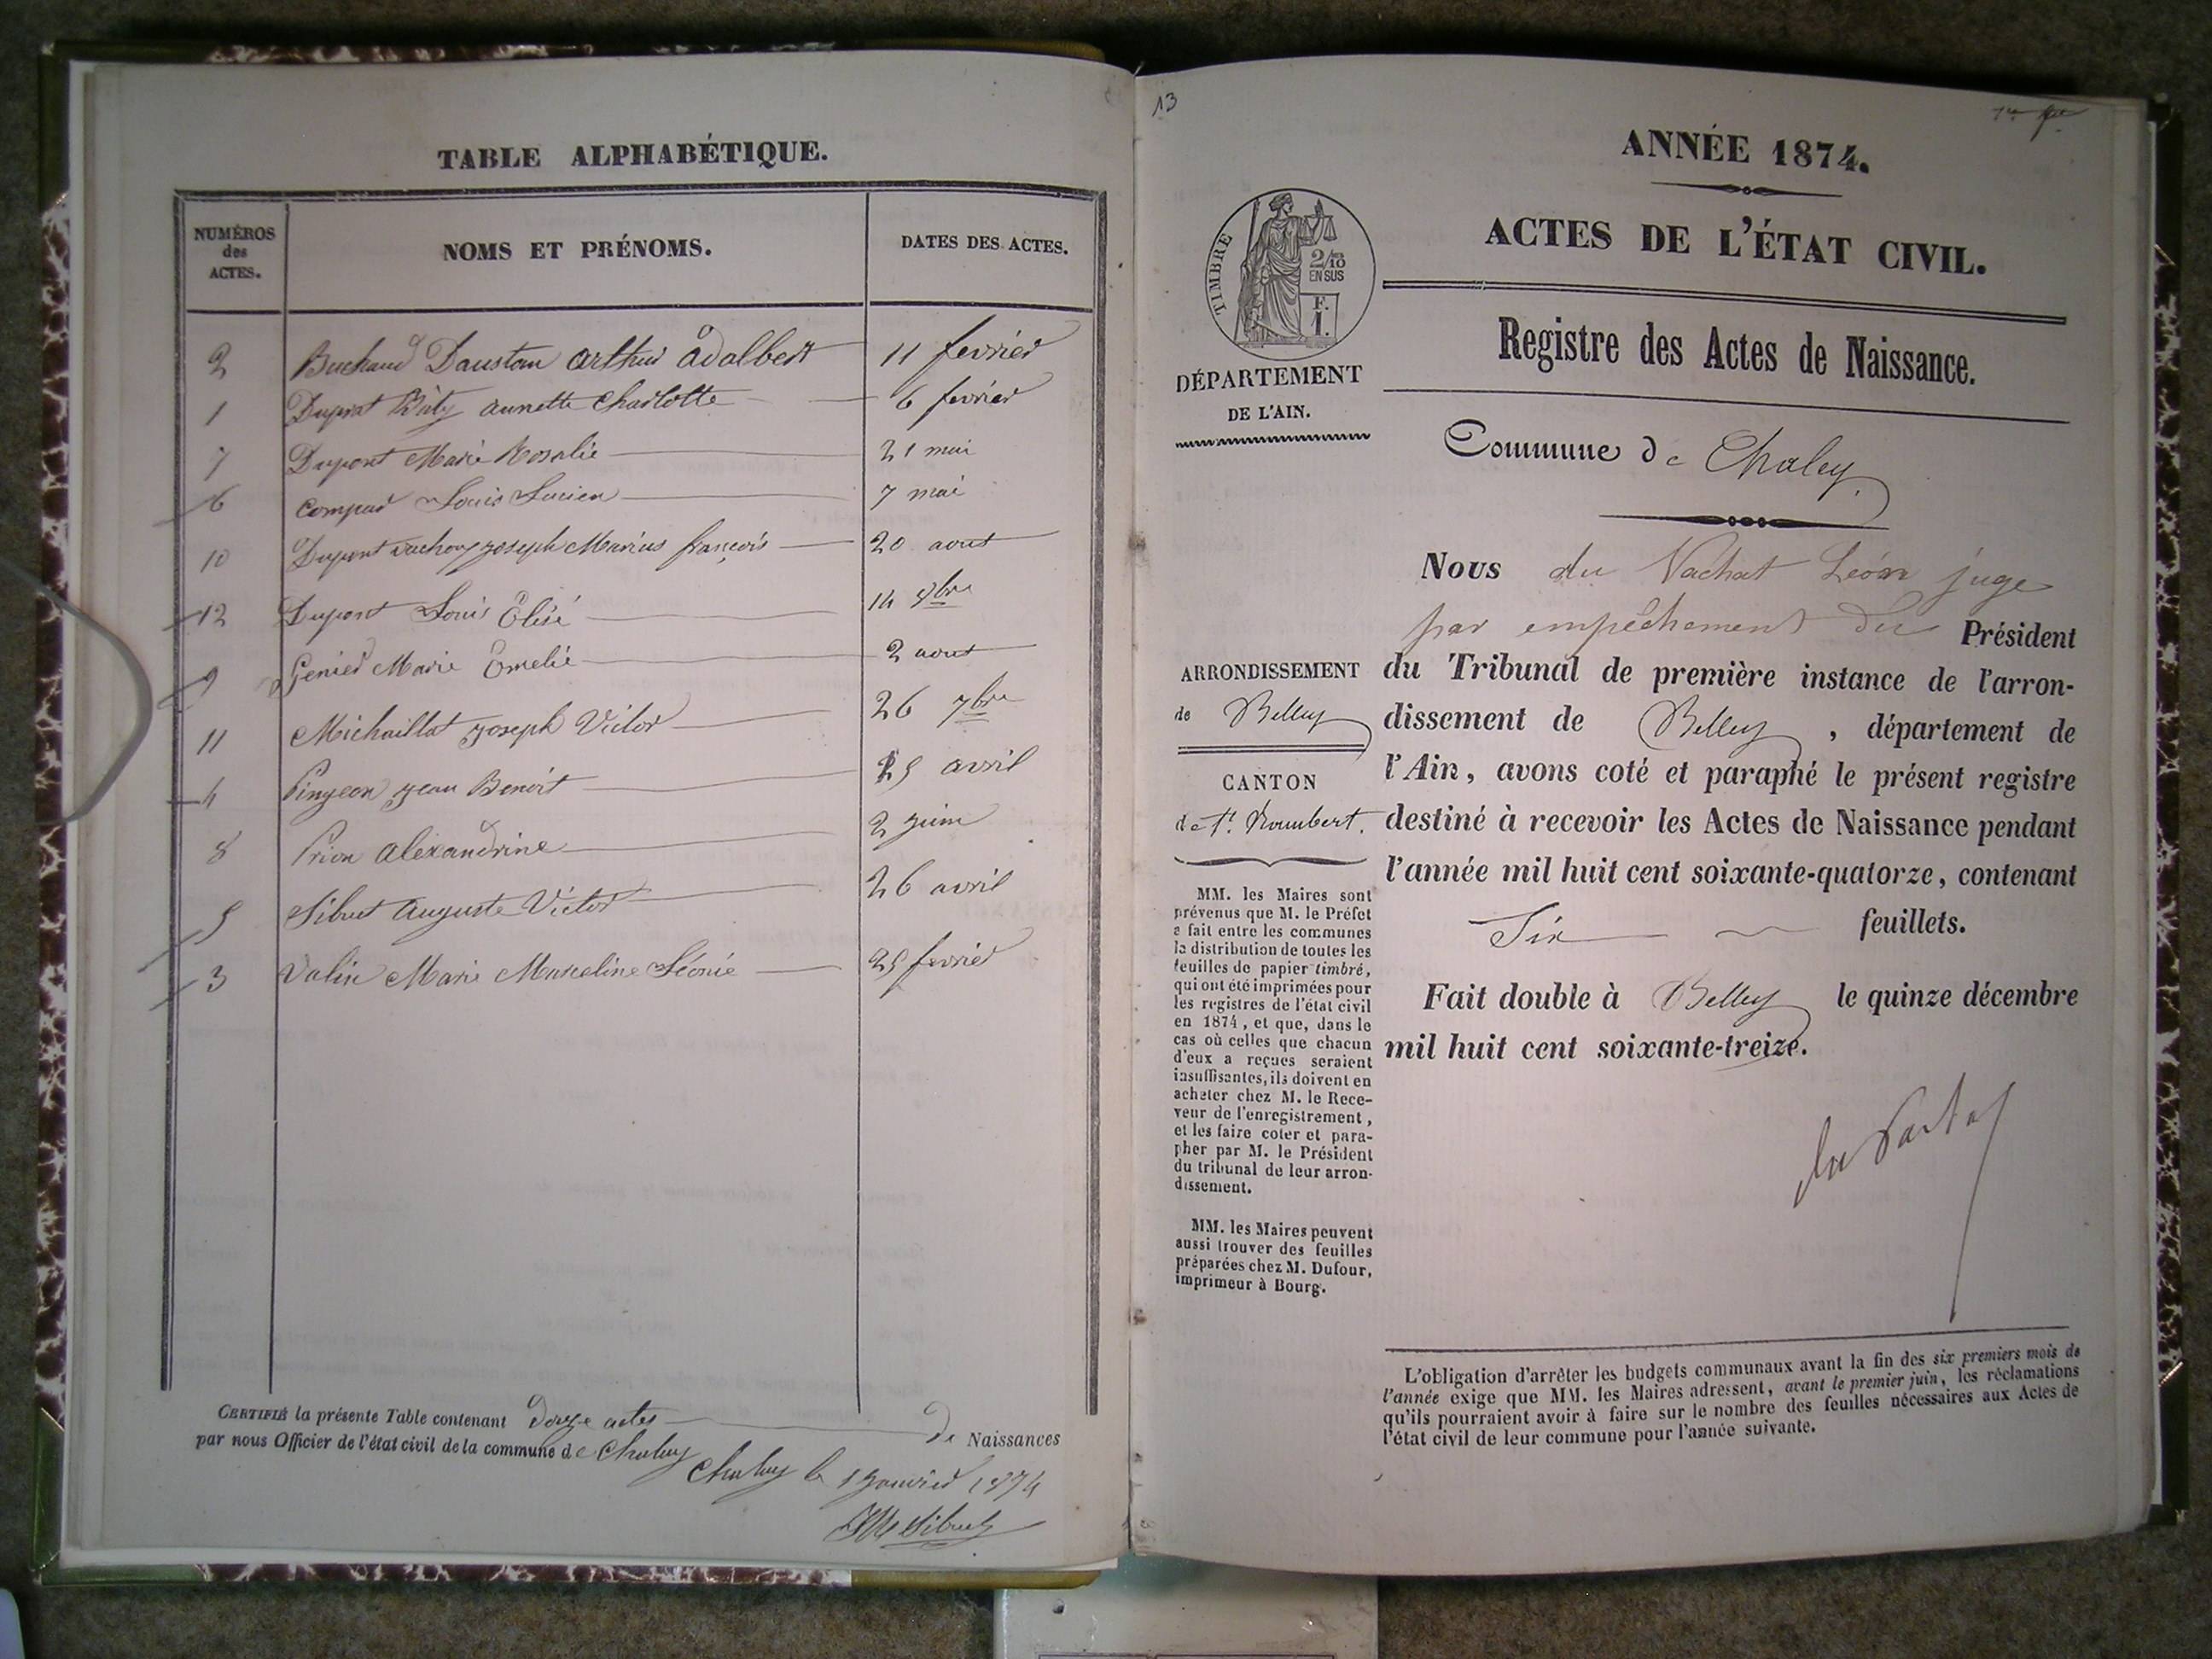 TABLE ALPHABÉTIQUE.
NUMÉROS
des
ACTES.
NOMS ET PRÉNOMS.
DATES DES ACTES.
2 Buchaud Daustan Arthur Adalbert 11 fevrier
1 Dupont annette Charlotte 6 fevrier
7 Dupont Marie Rosalie 21 mai
6 Compad Louis Lucien 7 mai
10 Dupont Joseph Marius françois 20 aout
12 Dupont Louis Élisé 14 8bre
9 Genied Marie Emelie 2 aout
11 Michaillat Joseph Victor 26 7bre
4 Pingeon Jean Benoit 25 avril
8 Prion Alexandrine 2 juin
5 Sibuet Auguste Victor 26 avril
3 Valin Marie Marceline Léonie 25 fevrier
CERTIFIÉ la présente Table contenant Douze actes de Naissances
par nous Officier de l'état civil de la commune de Chaley
Chaley le 1 Janvier 1874
Sibuet
13
ANNÉE 1874.
ACTES DE L'ÉTAT CIVIL.
Registre des Actes de Naissance.
TIMBRE
2/10
EN SUS
F.
1.
DÉPARTEMENT
DE L'AIN.
Commune de Chaley
Nous du Vachat Léon juge
par empêchement du Président
du Tribunal de première instance de l'arron-
dissement de Belley, département de
l'Ain, avons coté et paraphé le présent registre
destiné à recevoir les Actes de Naissance pendant
l'année mil huit cent soixante-quatorze, contenant
Six feuillets.
Fait double à Belley le quinze décembre
mil huit cent soixante-treize.
du Vachat
ARRONDISSEMENT
de Belley
CANTON
de St. Rambert.
MM. les Maires sont
prévenus que M. le Préfet
a fait entre les communes
la distribution de toutes les
feuilles de papier timbré,
qui ont été imprimées pour
les registres de l'état civil
en 1874, et que, dans le
cas où celles que chacun
d'eux a reçues seraient
insuffisantes, ils doivent en
acheter chez M. le Rece-
veur de l'enregistrement,
et les faire coter et para-
pher par M. le Président
du tribunal de leur arron-
dissement.
MM. les Maires peuvent
aussi trouver des feuilles
préparées chez M. Dufour,
imprimeur à Bourg.
L'obligation d'arrêter les budgets communaux avant la fin des six premiers mois de
l'année exige que MM. les Maires adressent, avant le premier juin, les réclamations
qu'ils pourraient avoir à faire sur le nombre des feuilles nécessaires aux Actes de
l'état civil de leur commune pour l'année suivante.